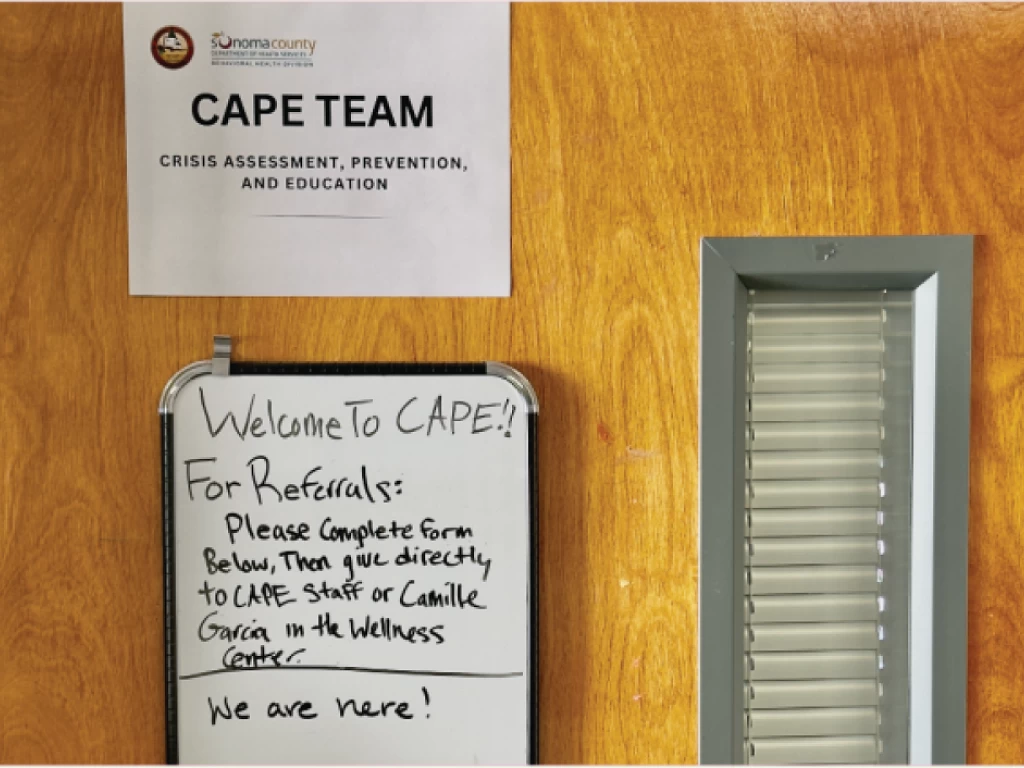 sonomacounty
DEPARTMENT OF HEALTH SERVICES
BEHAVIORAL HEALTH DIVISION
CAPE TEAM
CRISIS ASSESSMENT, PREVENTION,
AND EDUCATION
Welcome To CAPE!!
For Referrals:
Please Complete form
Below, Then give directly
to CAPE Staff or Camille
Garcia in the Wellness
Center.
We are here!